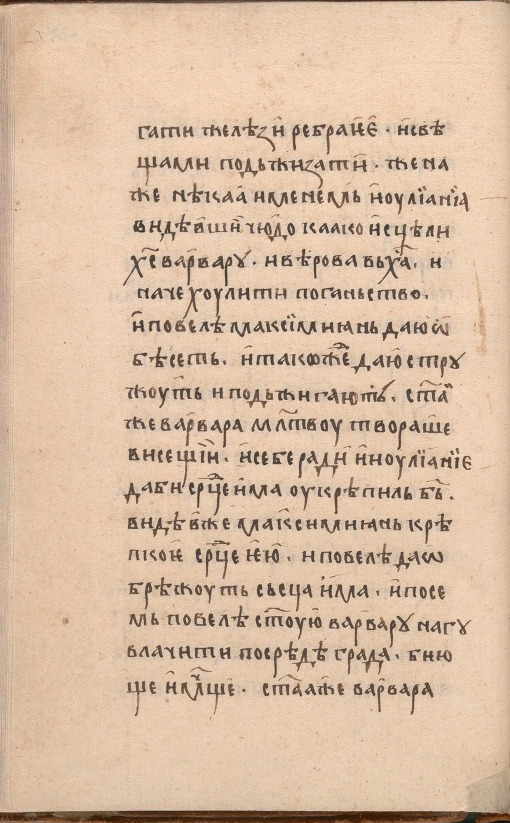 гати желѣзн҄ ребраи҆е҆ · и҆свѣ
щами подьжизати҆ · жена
же нѣкаа именемь и҆оулїанїа
видѣвши҆ чюдо како и҆сцѣли
х҃с варвару · и вѣрова вь х҃а · и
наче хоулити поганьство ·
и҆ повелѣ маѯїмиань да ю ѡ
бѣсеть · и҆ такоже да ю стру
жоуть и подьжигають · с҃таа
же варвара мл҃твоу твораше
висещїи · и҆ себе ради҆ и҆ иоулїанїе
да би ср҃це има оукрѣпиль б҃ь ·
видѣвже маѯимиань крѣ
пкое҆ ср҃це е҆ю · и повелѣ да ѡ
брѣжоуть сьсца и҆ма · и҆ посе
мь повелѣ с҃тоую варвару нагу
влачити посрѣдѣ града · бию
ще и҆ мл҃ще · с҃тааже варвара